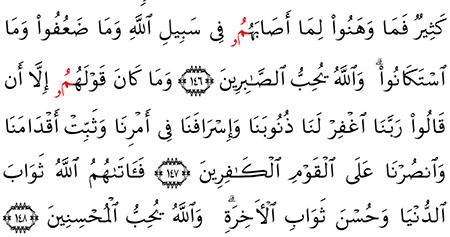 كَثِيرٞ فَمَا وَهَنُواْ لِمَا أَصَابَهُمُۥ فِي سَبِيلِ ٱللَّهِ وَمَا ضَعُفُواْ وَمَا
ٱسْتَكَانُواْۗ وَٱللَّهُ يُحِبُّ ٱلصَّٰبِرِينَ ١٤٦ وَمَا كَانَ قَوْلَهُمُۥ إِلَّا أَن
قَالُواْ رَبَّنَا ٱغْفِرْ لَنَا ذُنُوبَنَا وَإِسْرَافَنَا فِي أَمْرِنَا وَثَبِّتْ أَقْدَامَنَا
وَٱنصُرْنَا عَلَى ٱلْقَوْمِ ٱلْكَٰفِرِينَ ١٤٧ فَـَٔاتَىٰهُمُ ٱللَّهُ ثَوَابَ
ٱلدُّنْيَا وَحُسْنَ ثَوَابِ ٱلْأَخِرَةِۗ وَٱللَّهُ يُحِبُّ ٱلْمُحْسِنِينَ ١٤٨